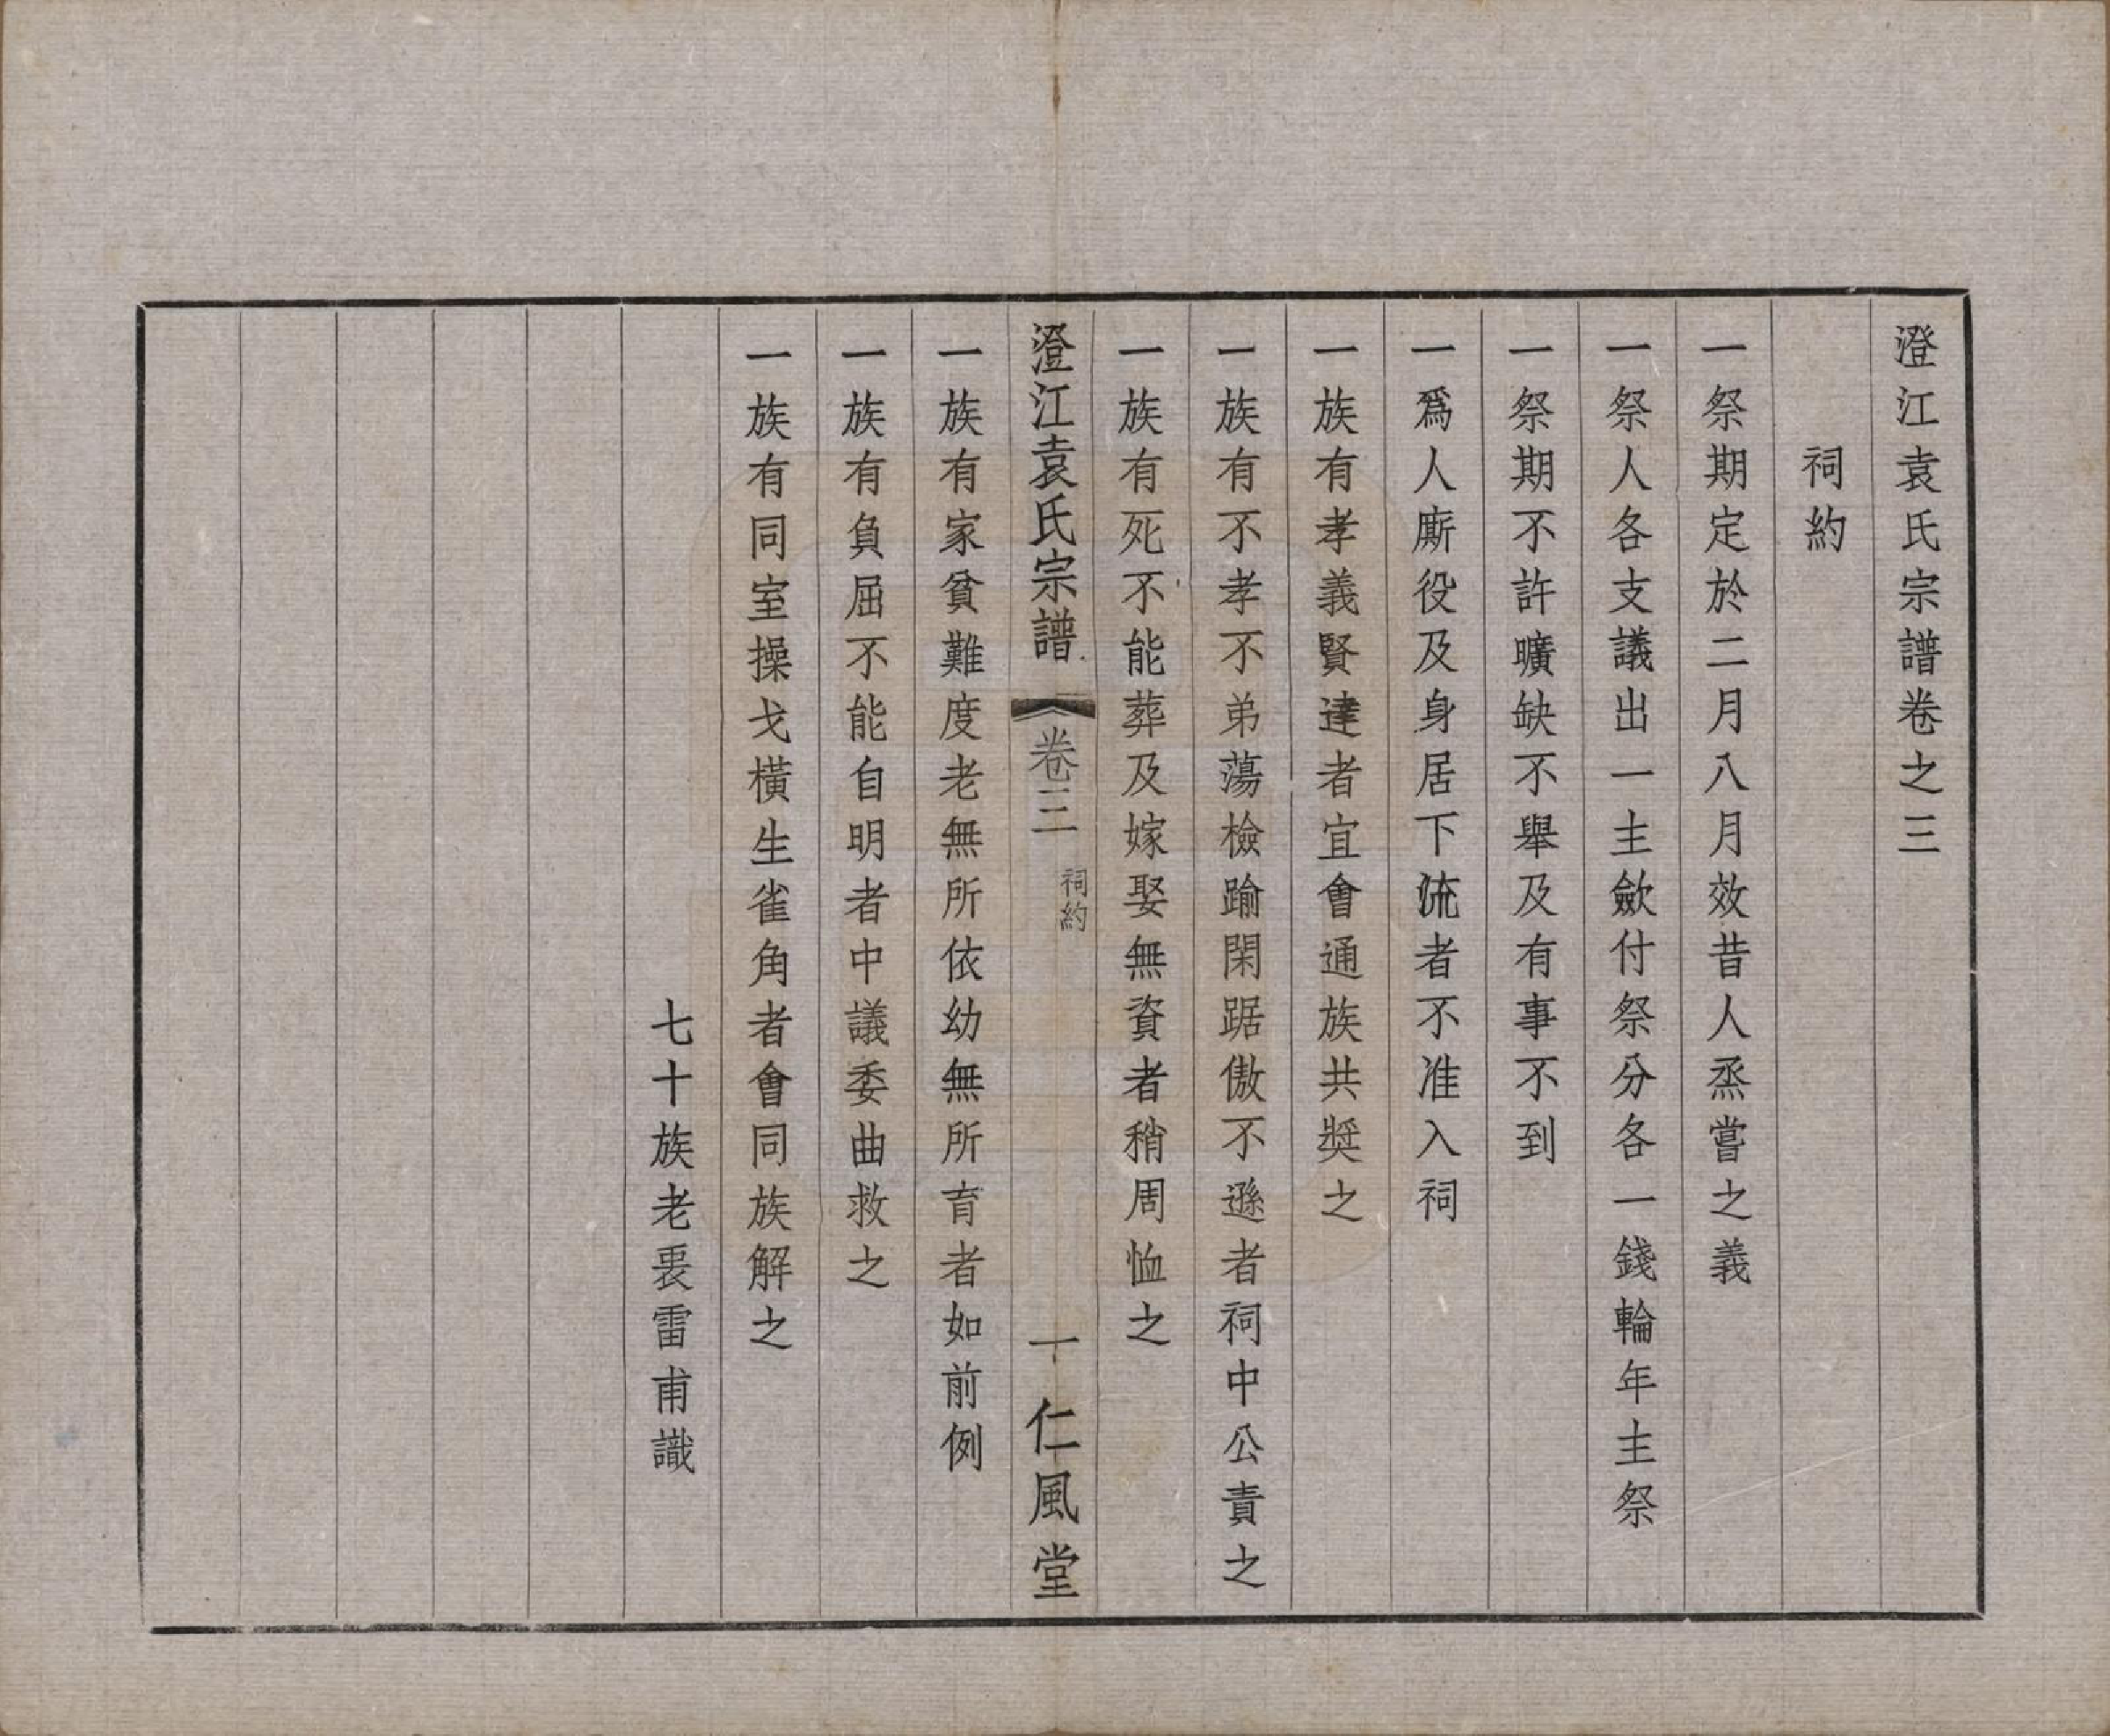 澄江袁氏宗譜卷之三
祠約
一祭期定於二月八月效昔人烝嘗之義
一祭人各支議出一主歛付祭分各一錢輪年主祭
一祭期不許曠缺不舉及有事不到
一爲人廝役及身居下流者不准入祠
一族有孝義賢達者宜會通族共奬之
一族有不孝不弟蕩檢踰閑踞傲不遜者祠中公責之
一族有死不能葬及嫁娶無資者稍周恤之
澄江袁氏宗譜 卷三 祠約 一 仁風堂
一族有家貧難度老無所依幼無所育者如前例
一族有負屈不能自明者中議委曲救之
一族有同室操戈橫生雀角者會同族解之
七十族老裠雷甫識